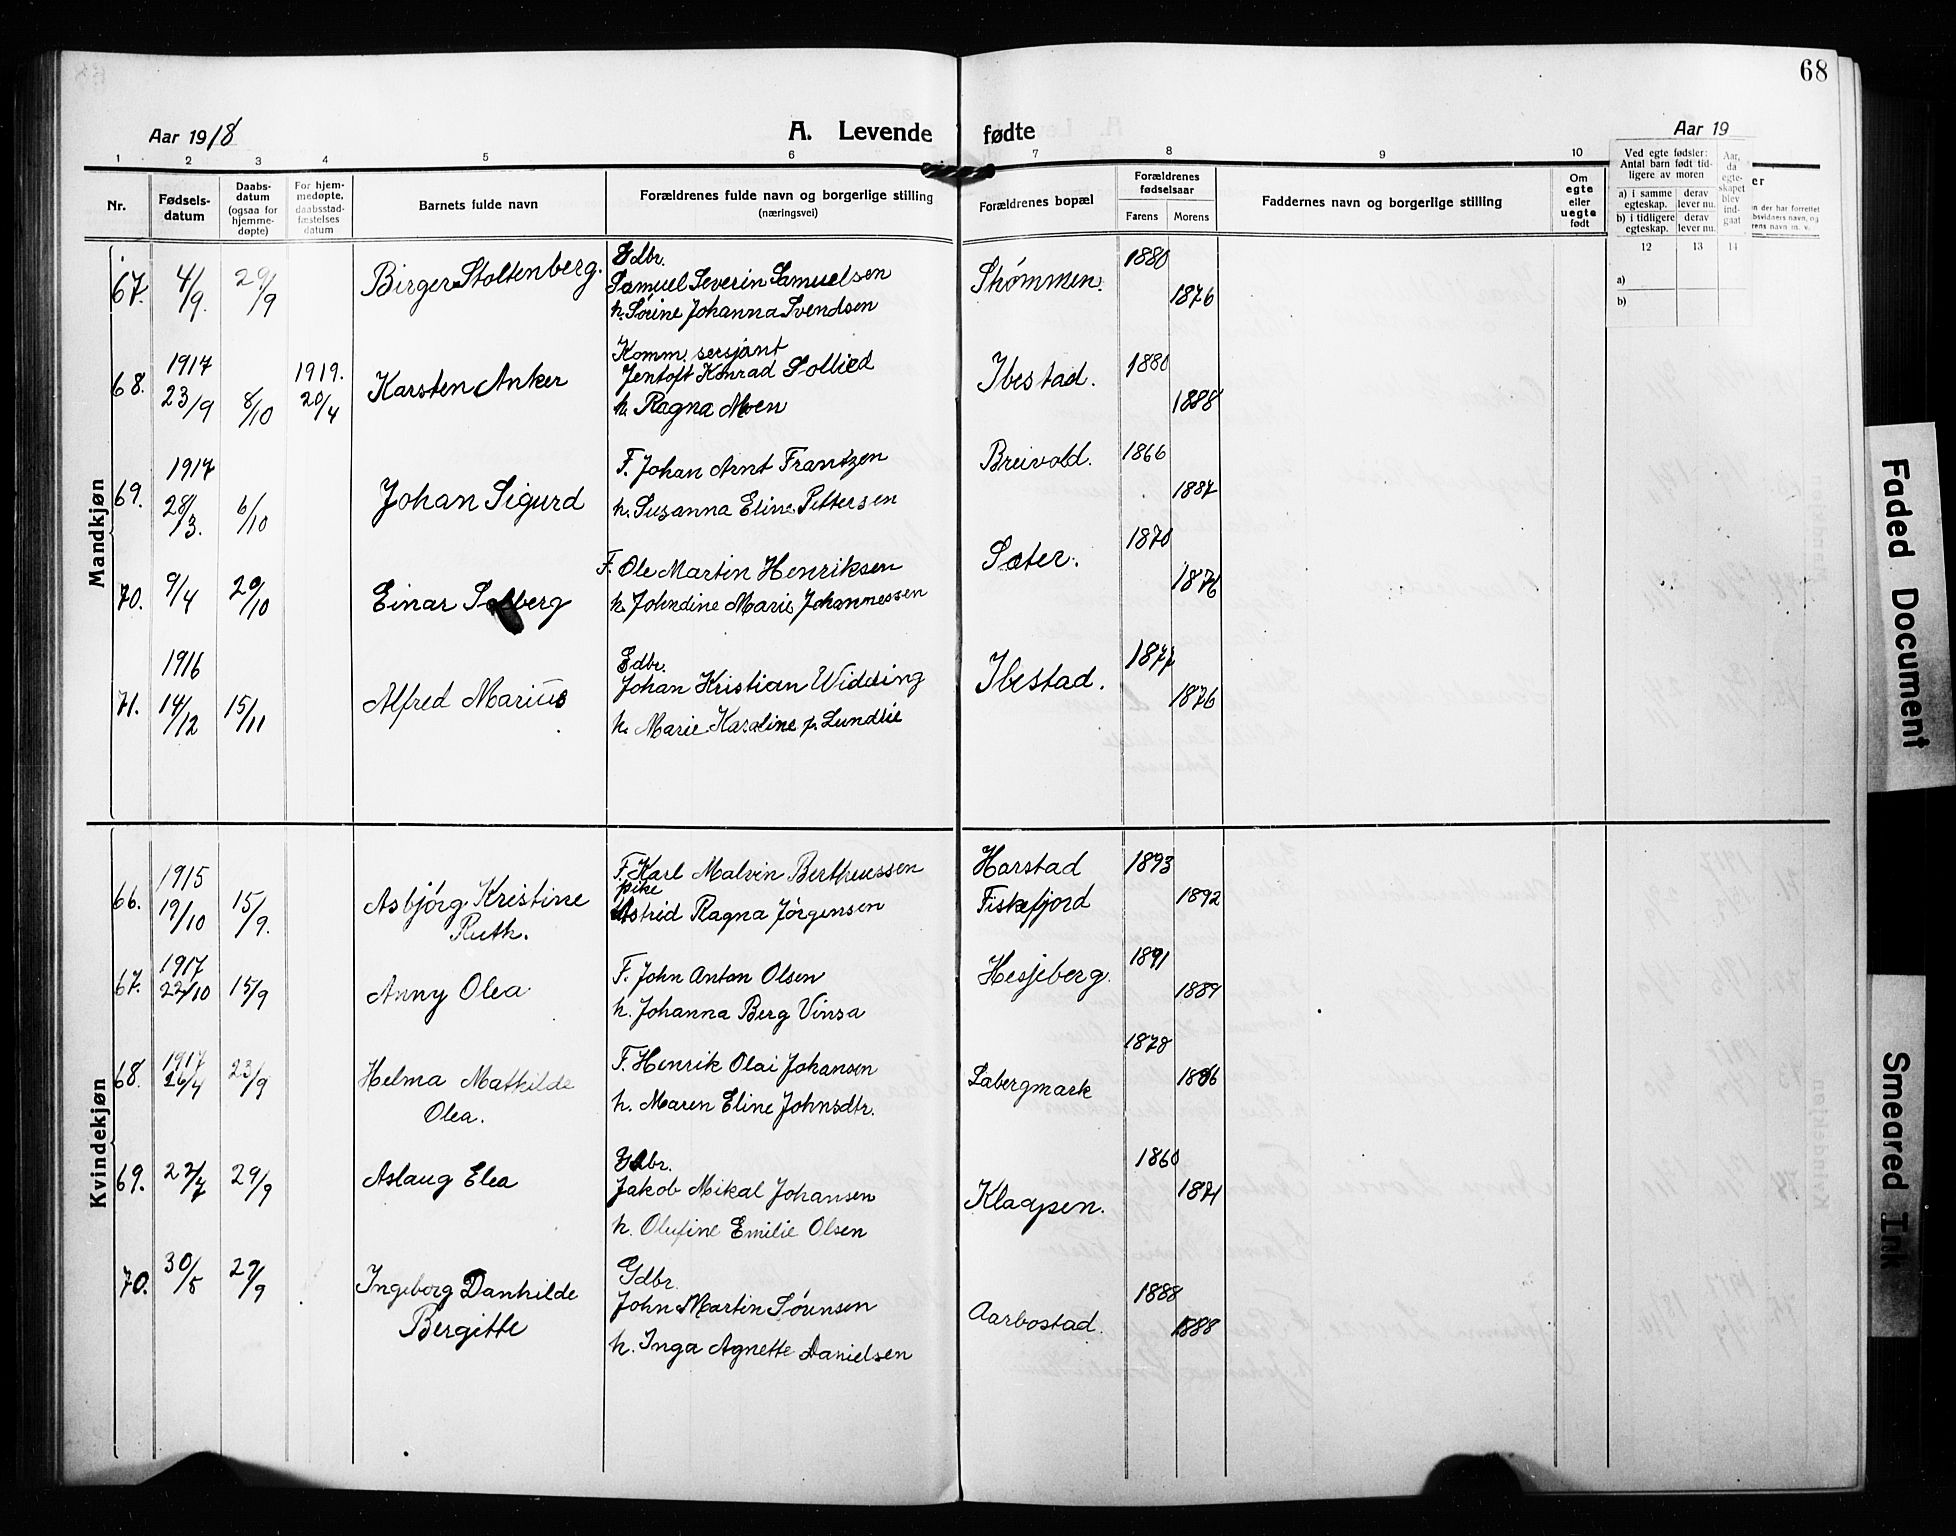 68
Aar 1918
A. Levende fødte
Aar 19
1 2 3 4 5 6 7 8 9 10
Nr.
Fødsels-
datum
Daabs-
datum
(ogsaa for
hjemme-
døpte)
For hjem-
medøpte,
daabsstad-
fæstelses
datum
Barnets fulde navn
Forældrenes fulde navn og borgerlige stilling
(næringsvei)
Forældrenes bopæl
Forældrenes
fødselsaar
Farens Morens
Faddernes navn og borgerlige stilling
Om
egte
eller
uegte
født
Ved egte fødsler:
Antal barn født tid-
ligere av moren
a) i samme
egteskap.
derav
lever nu.
b) i tidligere
egteskap.
derav
lever nu.
Aar,
da
egte-
skapet
blev
ind-
gaat
12 13 14
a)
b)
Mandkjøn
67. 4/9. 29/9 Birger Stoltenberg.
Gdbr.
Samuel Severin Samuelsen
h. Sørine Johanna Svendsen
1880
1876
68. 1917 23/9 8/10 1919. 20/4 Karsten Anker
Komm. sersjant
Jentoft Konrad Sollied
h. Ragna Moen
Ibestad. 1880
1888
69. 1917 28/3. 6/10 Johan Sigurd
F. Johan Arnt Frantzen
h. Susanna Eline Pettersen
Breivold. 1866
1887
70. 9/4 20/10 Einar Solberg
F. Ole Martin Henriksen
h. Johndine Marie Johannessen
Sæter. 1870
1876
71. 1916 14/12 15/11 Alfred Marius
Gdbr.
Johan Kristian Widding
h. Marie Karoline f. Lundlie
Ibestad. 1877
1876
Kvindekjøn
66. 1915 19/10 15/9. Asbjórg Kristine
Ruth.
F. Karl Malvin Bertheussen
pike
Astrid Ragna Jørgensen
Harstad 1893
Fiskefjord 1892
67. 1917 22/10 15/9 Anny Olea
F. John Anton Olsen
h. Johanna Berg Vinsa
Hesjeberg. 1891
1889
68. 1917 26/4 23/9 Helma Mathilde
Olea.
F. Henrik Olai Johansen
h. Maren Eline Johnsdtr.
Labergmark 1878
69. 22/7 29/9 Aslaug Elea
Gdbr.
Jakob Mikal Johansen
h. Olufine Emilie Olsen
Klaapen. 1860
1871
70. 30/5 29/9 Ingeborg Danhilde
Bergitte
Gdbr.
John Martin Sørensen
h. Inga Agnette Danielsen
Aarbostad. 1888
1888
Faded Document
Smeared Ink